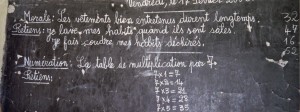 Vendredi, le 17 février
Morale: Les vêtements bien entretenus durent longtemps.
Retiens: je lave mes habits quand ils sont sales.
je fais coudre mes habits déchirés.
Numération: La table de multiplication par 7.
Retiens:
7x1 = 7
7x2 = 14
7x3 = 21
7x4 = 28
7x5 = 35